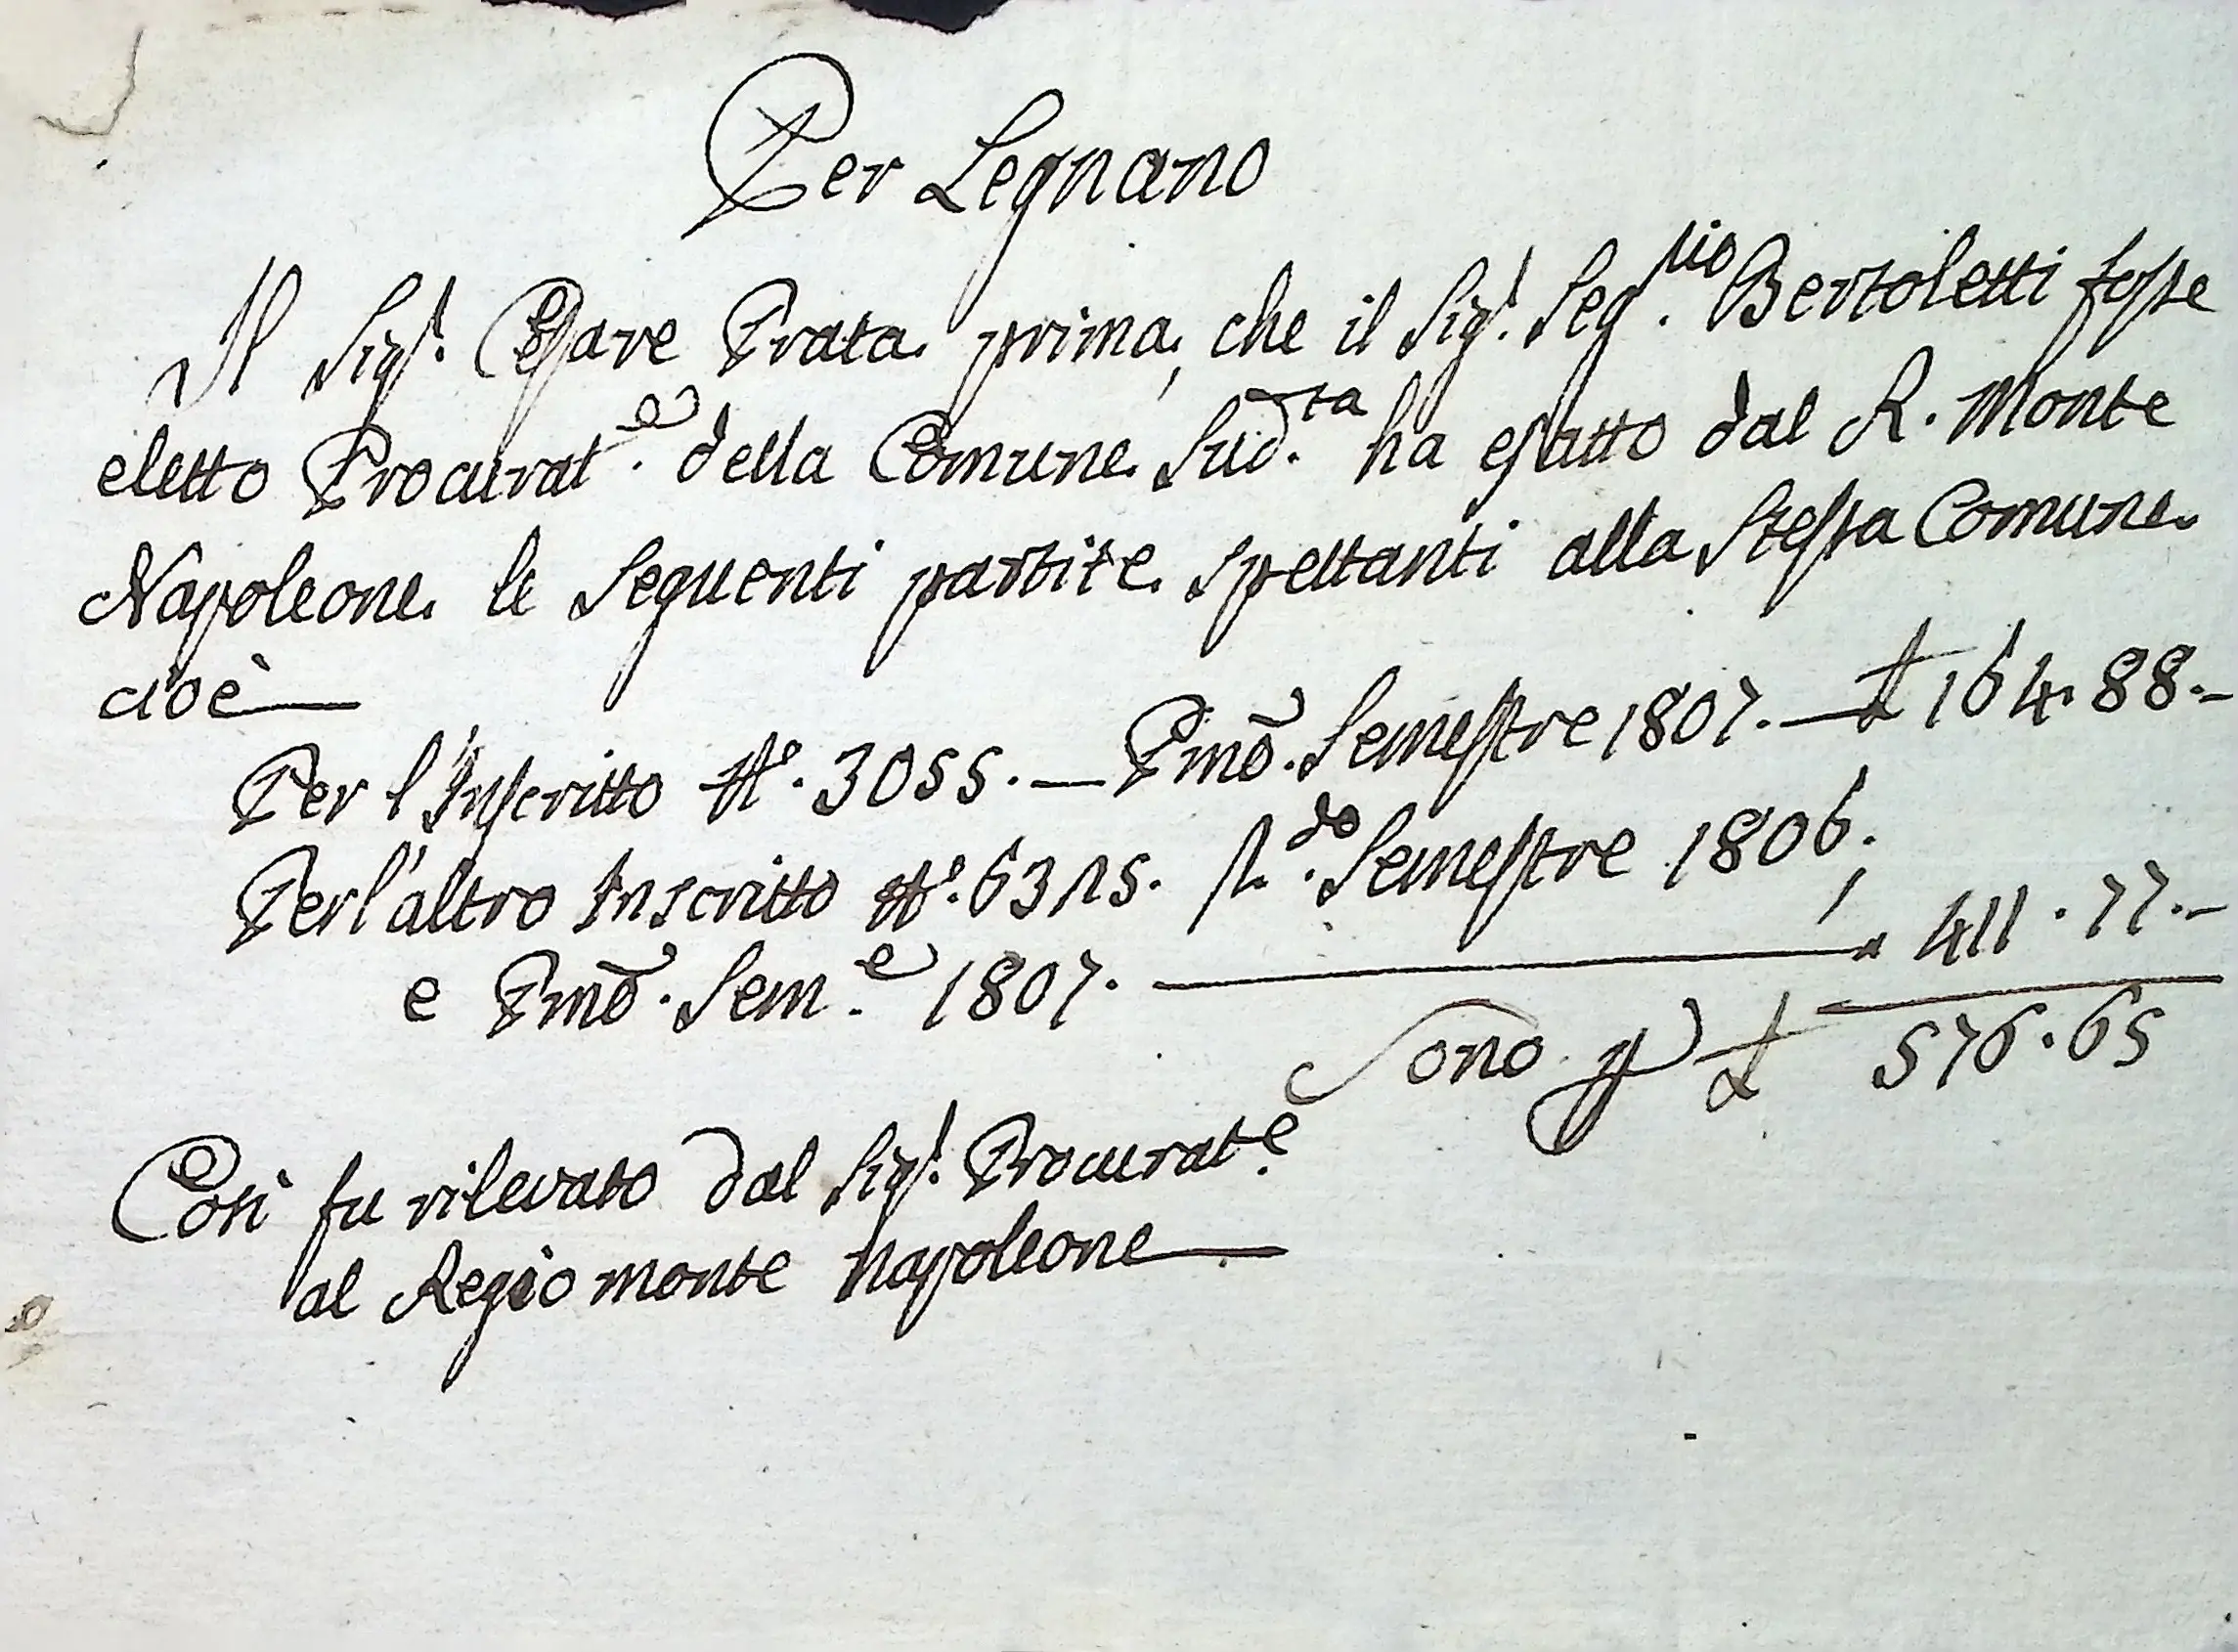 Per Legnano
Il Sig.r Cesare Prata prima, che il Sig.r Seg.rio Bertoletti fosse
eletto Procurat.e della Comune Sud.ta ha esatto dal R. Monte
Napoleone le seguenti partite spettanti alla Stessa Comune
cioè
Per l'Inscritto N.º 3055. — Pmo. Semestre 1807. — £ 164. 88. -
Per l'altro Inscritto N.º 6325. 2.do Semestre 1806;
e Pmo. Sem.e 1807. — " 411. 77. -
Sono p £ 576. 65
Così fu rilevato dal Sig.r Procurat.e
al Regio monte Napoleone